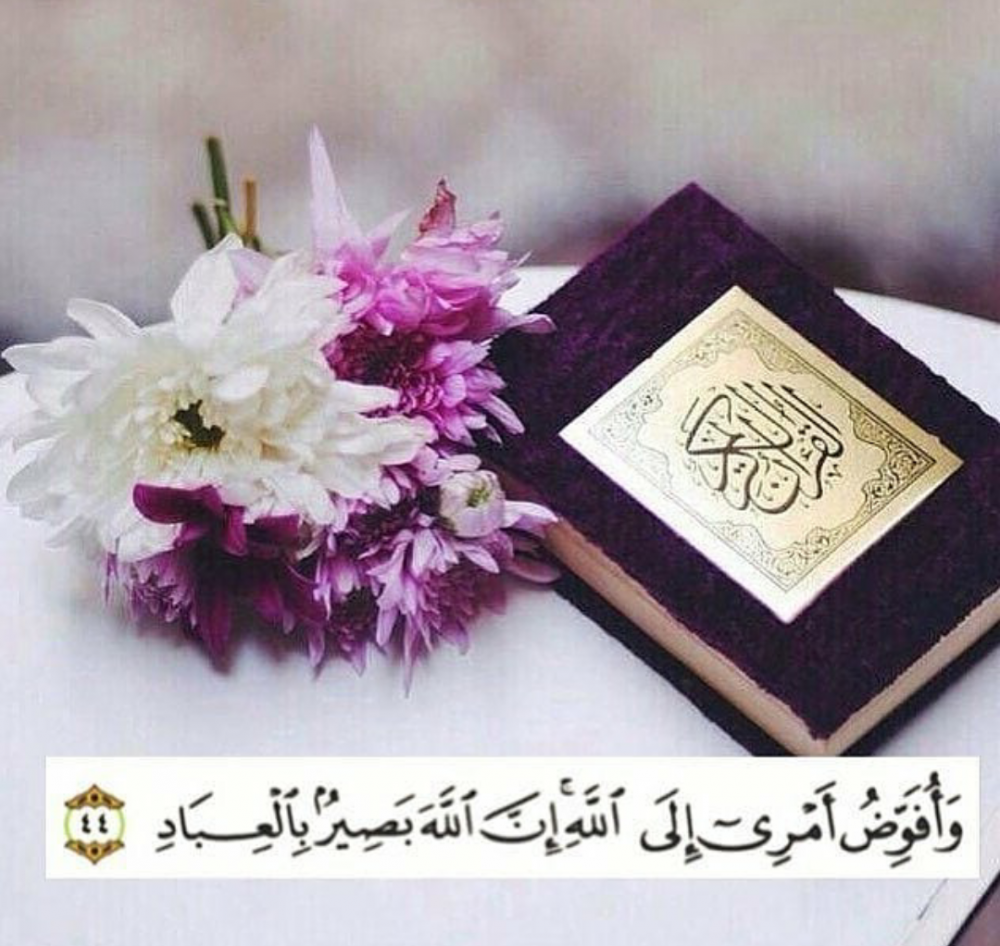 القرآن الكريم
وَأُفَوِّضُ أَمْرِىٓ إِلَى ٱللَّهِ ۚ إِنَّ ٱللَّهَ بَصِيرٌۢ بِٱلْعِبَادِ ٤٤